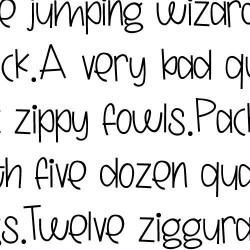 e jumping wizard
ck.A very bad qu
zippy fowls.Pack
th five dozen qua
s.Twelve ziggura